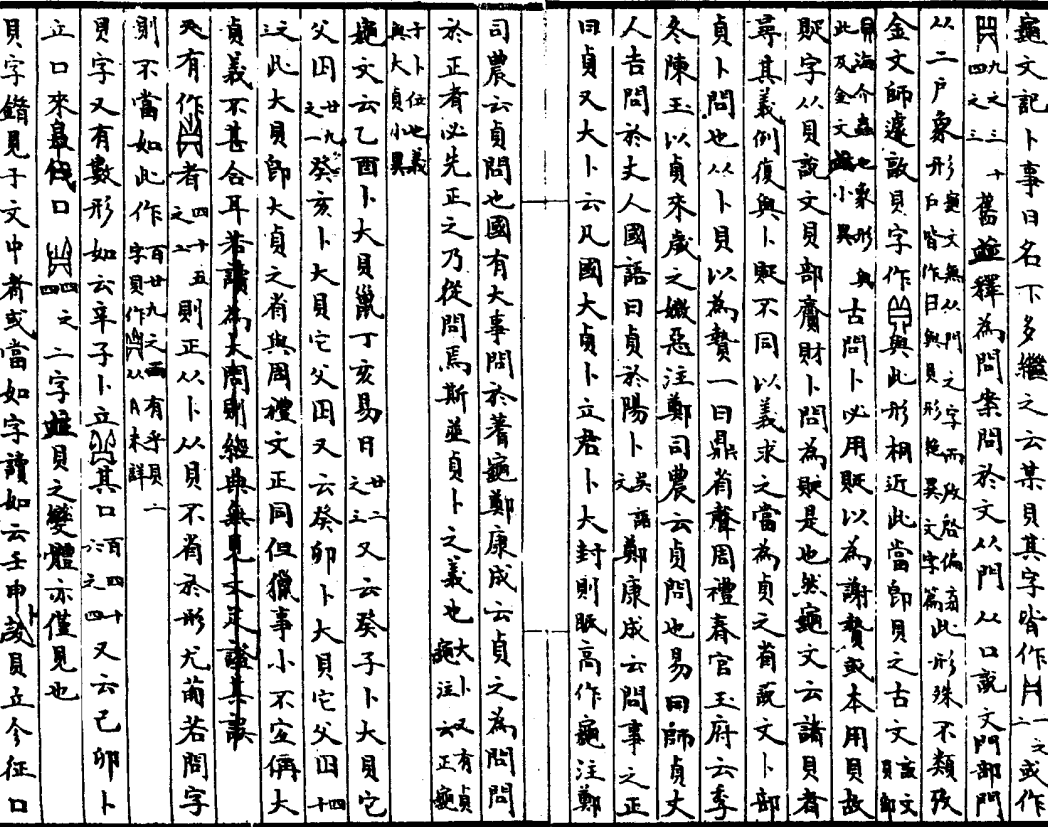 龜文記卜事日名下多繼之云某貝其字皆作一之二或作
四九之三之三十舊竝釋為問案問於文从門从口說文門部門
从二戶象形龜文無从門之字而攷啟偏旁戶皆作日與貝形絶異文字篇此形殊不類攷
金文師遽敦貝字作與此形相近此當卽貝之古文說文貝部
貝海介蟲也象形與此及金文竝小異古問卜必用貶以為謝贄或本用貝故
貶字从貝說文貝部齎財卜問為貶是也然龜文云諸貝者
尋其義例復與卜貶不同以義求之當為貞之省說文卜部
貞卜問也从卜貝以為贄一曰鼎省聲周禮春官玉府云季
冬陳玉以貞來歲之媺惡注鄭司農云貞問也易曰師貞丈
人吉問於丈人國語曰貞於陽卜吳語文鄭康成云問事之正
曰貞又大卜云凡國大貞卜立君卜大封則眡高作龜注鄭
司農云貞問也國有大事問於蓍龜鄭康成云貞之為問問
於正者必先正之乃從問焉斯竝貞卜之義也大卜又有貞龜注云正龜
于卜位也義與大貞小異
龜文云乙酉卜大貝巤丁亥易日廿二之三又云癸子卜大貝它
父囚廿九之一癸亥卜大貝它父囚又云癸卯卜大貝它父囚十四
之三此大貝卽大貞之省與周禮文正同但獵事小不宜偁大
貞義不甚合耳若讀為大問則經典無見文足證其誤
又有作者四十五之二則正从卜从貝不省於形尤葡若問字
則不當如此作百廿九之二有乎貝二字貝作从A未詳
貝字又有數形如云辛子卜立其口百四十六之四又云己卯卜
立口來口四四之二字竝貝之變體亦僅見也
貝字錯見于文中者或當如字讀如云壬申卜㱿貝立今征口